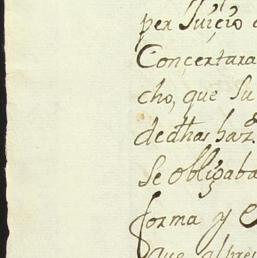 per Juiçio
Conçertara
cho, que Su
dedhas haz
Se obligaba
forma y
que alpre